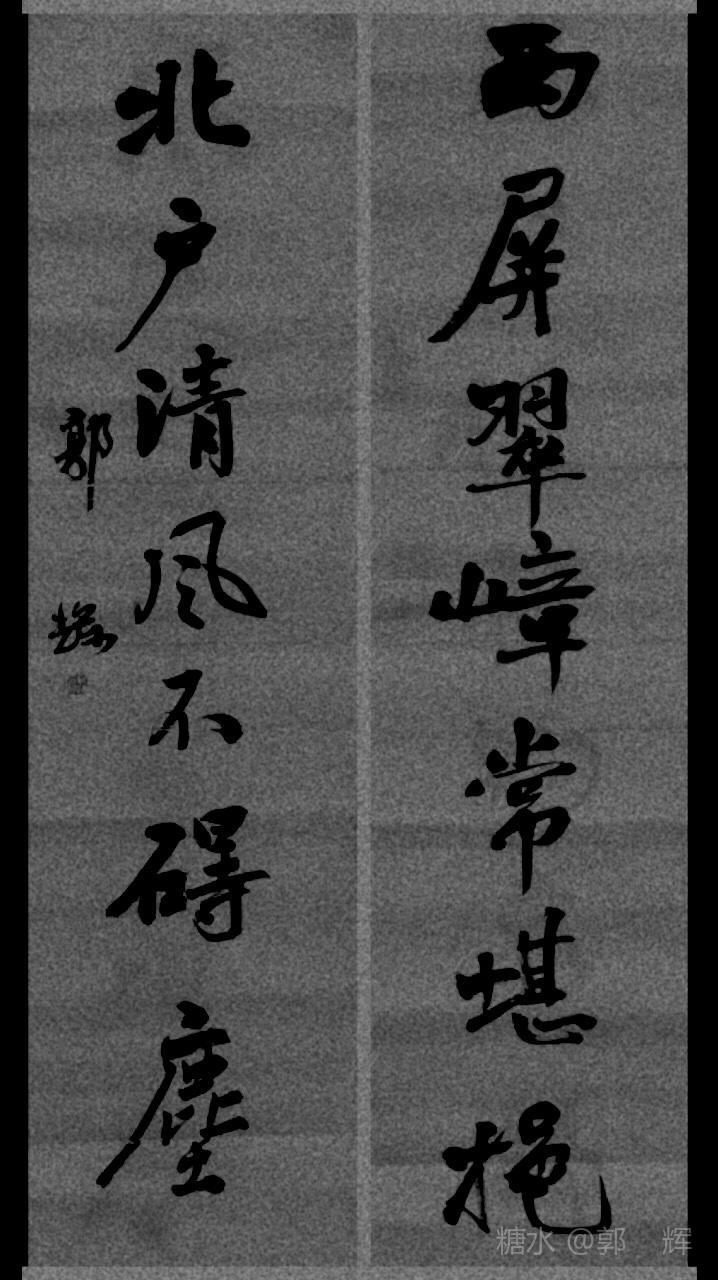 西屏翠嶂常堪挹
北户清风不碍尘
郭
糖水 @郭 辉